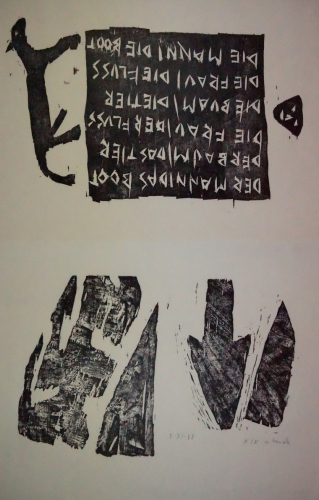 DER MANN|DAS BOOT
DER BAUM|DAS TIER
DIE FRAU|DER FLUSS
DIE BUAM|DIE TIER
DIE FRAU|DIE FLUSS
DIE MANN|DIE BOOT